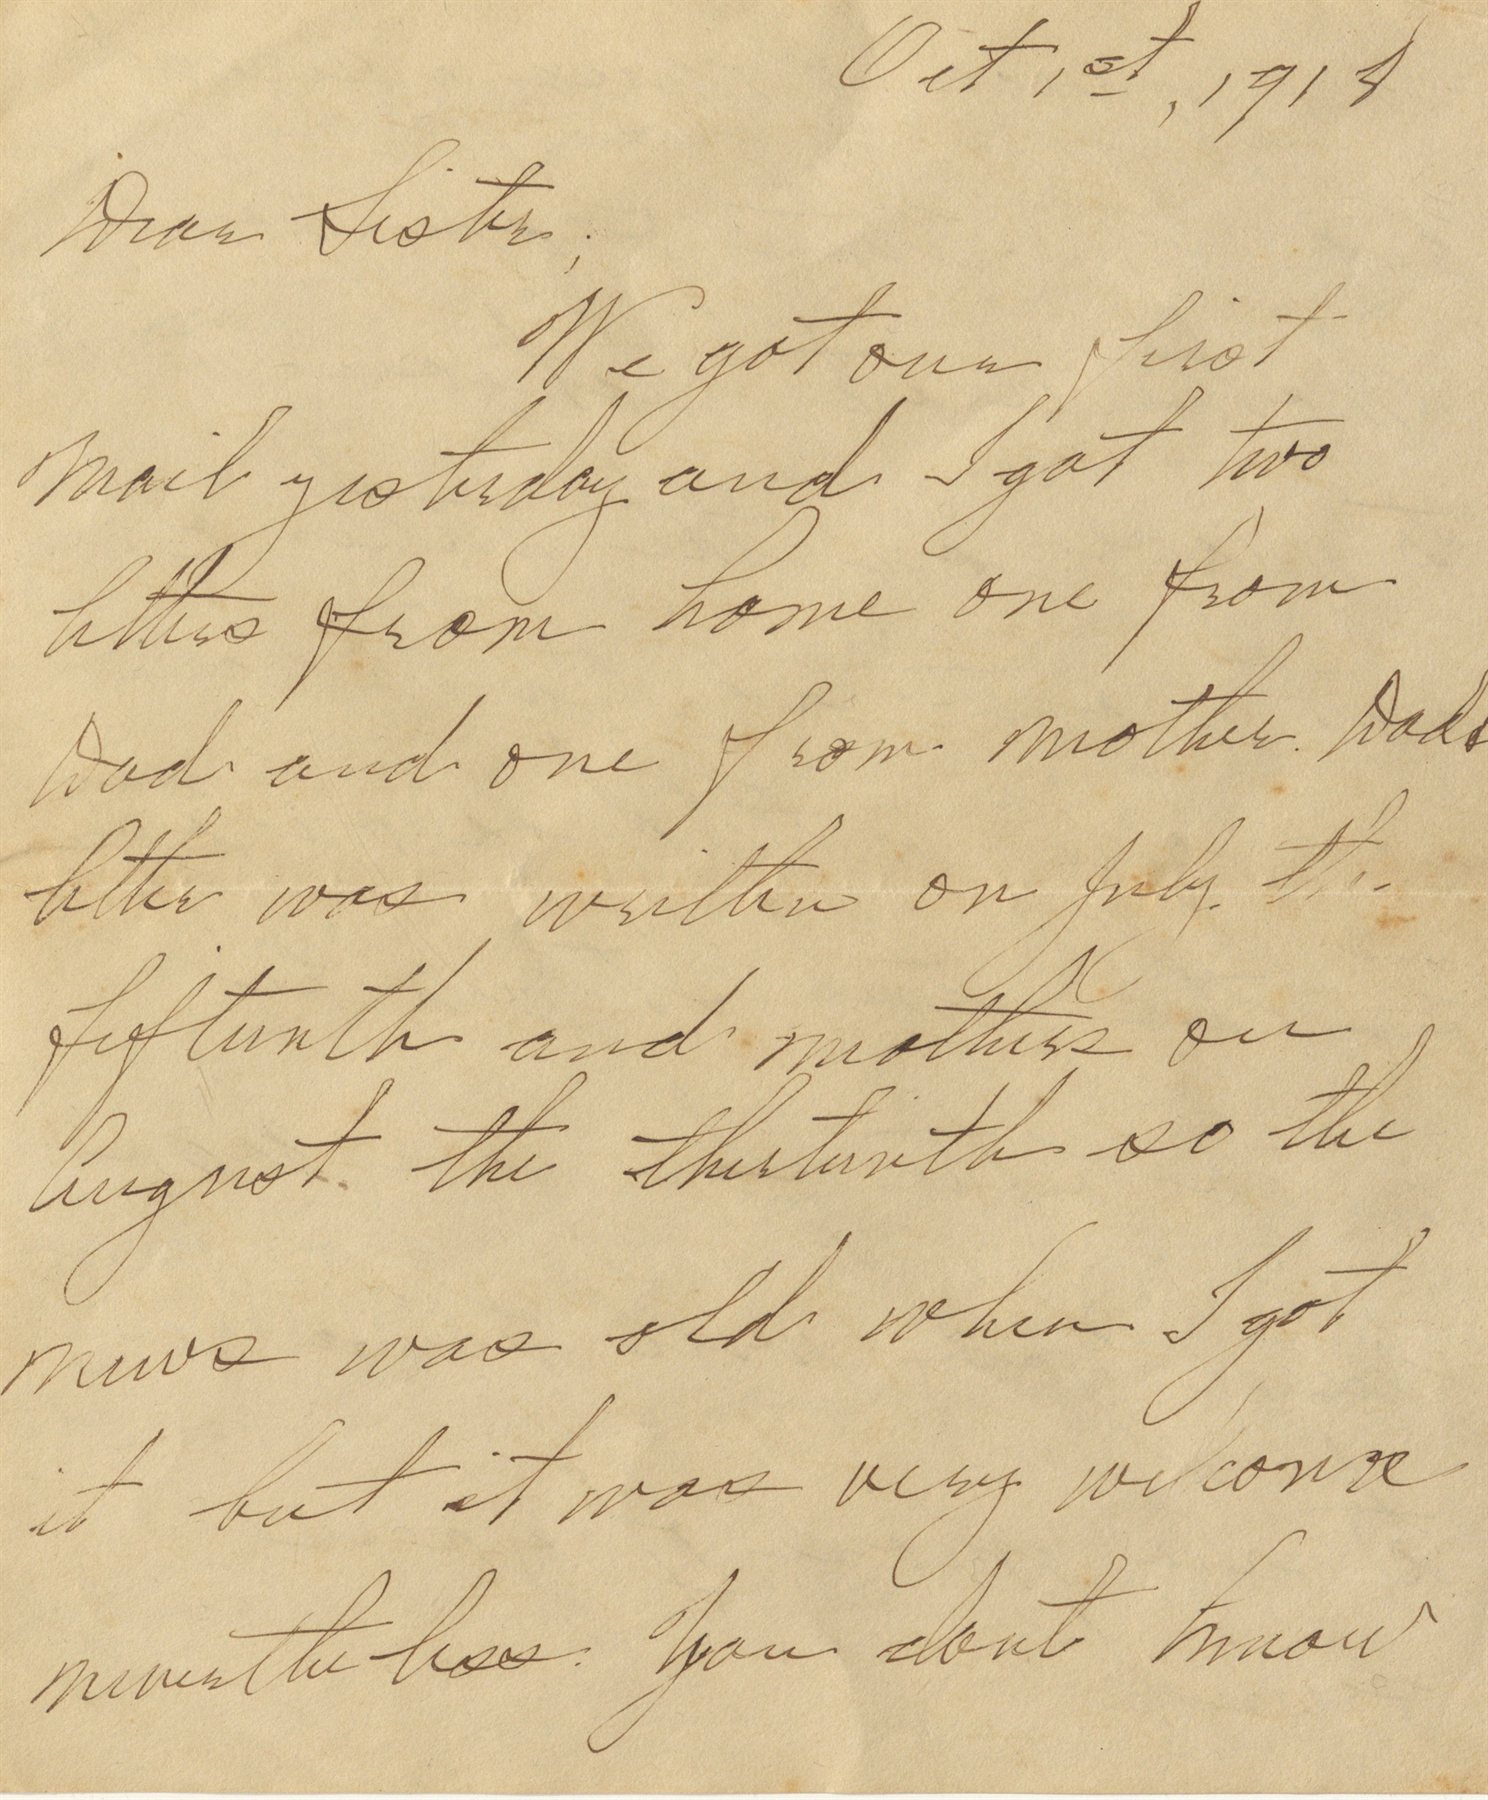 Oct 1st, 1918
Dear Sister;
We got our first
mail yesterday and I got two
letters from home one from
Dad and one from mother. Dads
letter was written on July. the
fifteenth and mothers on
August. the thirteenth so the
news was old when I got
it but it was very welcome
nevertheless. You dont know